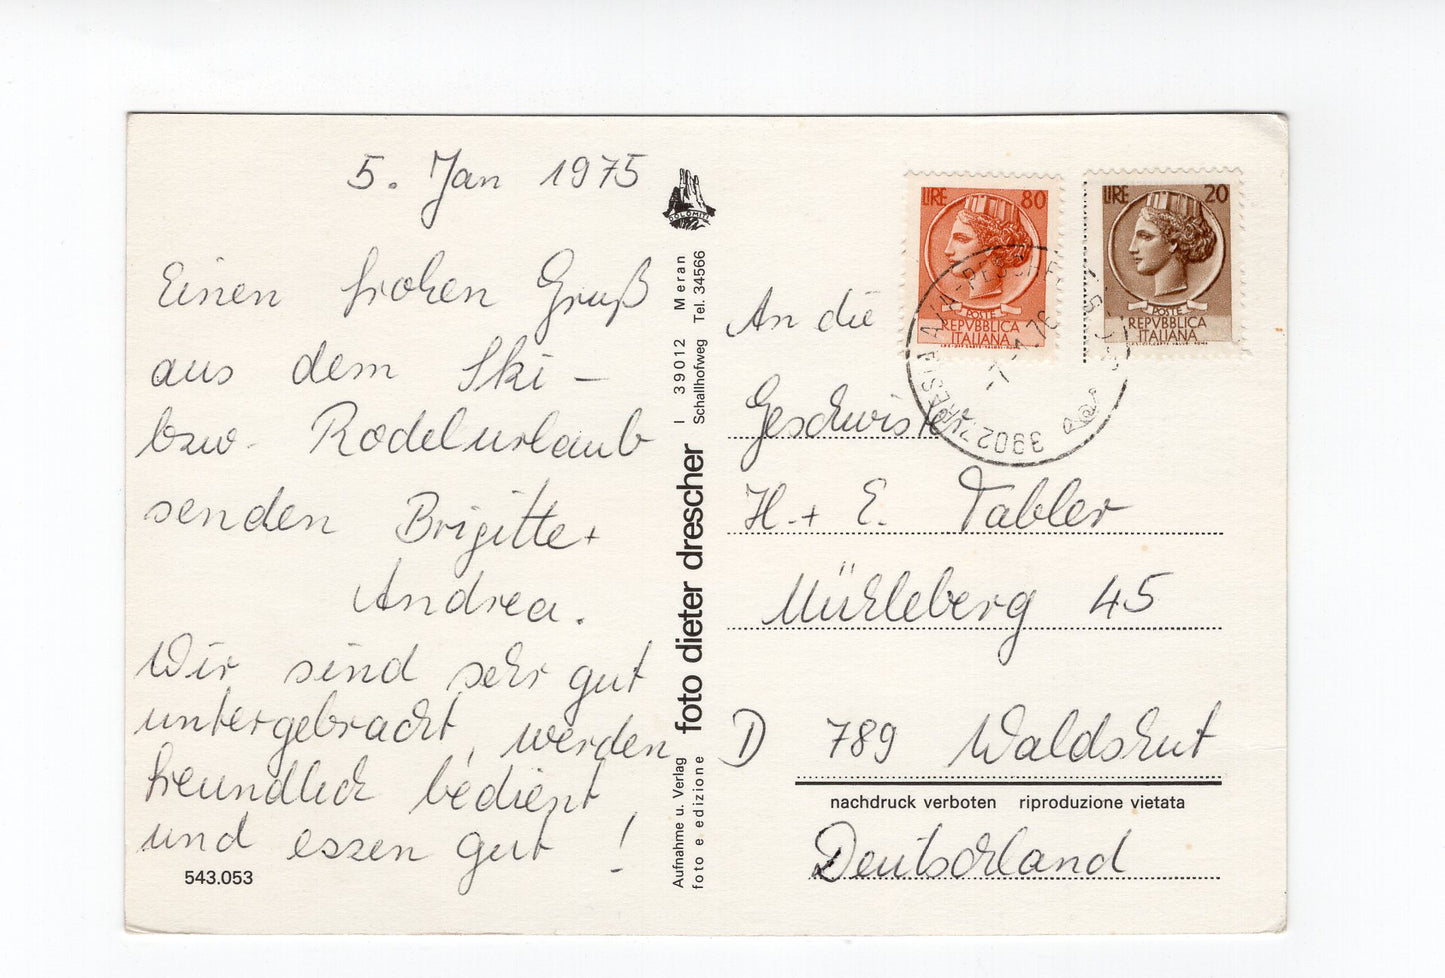 5. Jan 1975
Einen frohen Gruß
aus dem Ski-
bzw. Rodelurlaub
senden Brigitte +
Andrea.
Wir sind sehr gut
untergebracht, werden
freundlich bedient,
und essen gut !
543.053
DOLOMITI
I 39012 Meran
Schallhofweg Tel. 34566
foto dieter drescher
Aufnahme u. Verlag
foto e edizione
LIRE 80
POSTE
REPVBBLICA
ITALIANA
LIRE 20
POSTE
REPVBBLICA
ITALIANA
39027
An die
Geschwister
H. + E. Tabler
Mühleberg 45
D 789 Waldshut
nachdruck verboten riproduzione vietata
Deutschland